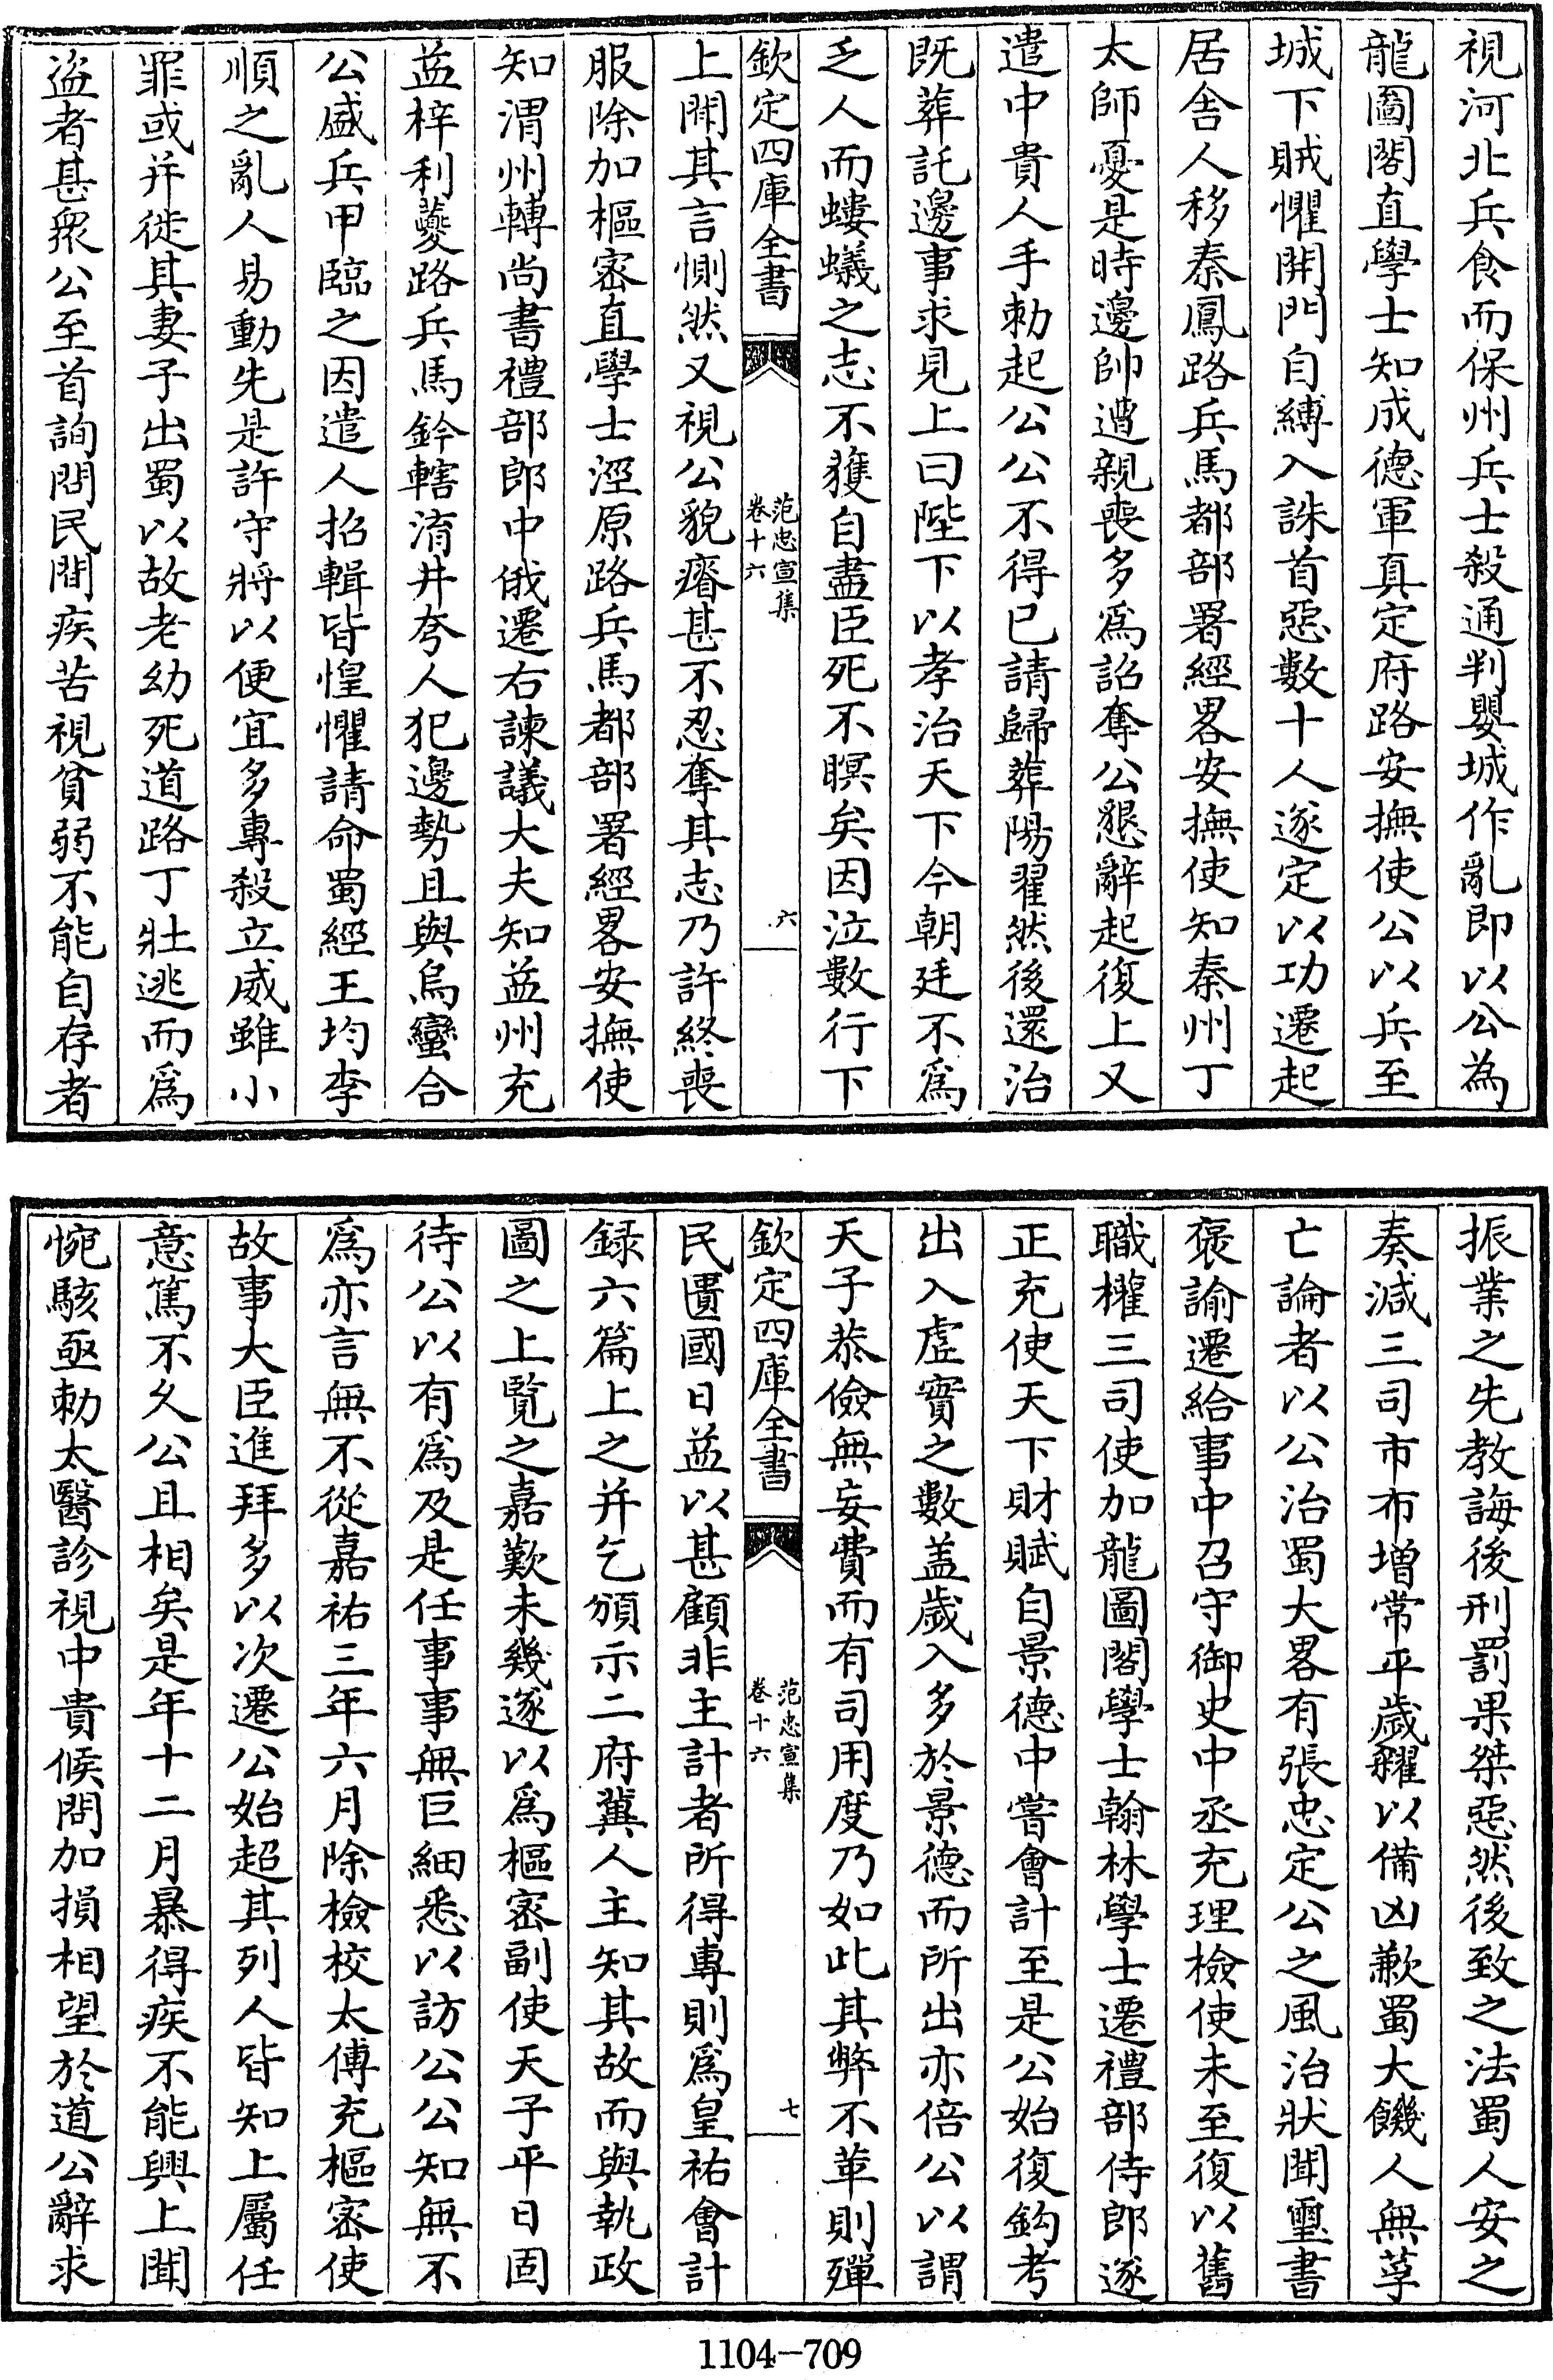 視河北兵食而保州兵士殺通判嬰城作亂即以公為
龍圖閣直學士知成德軍真定府路安撫使公以兵至
城下賊懼開門自縛入誅首惡數十人遂定以功遷起
居舍人移秦鳳路兵馬都部署經畧安撫使知秦州丁
太師憂是時邊帥遭親喪多爲詔奪公懇辭起復上又
遣中貴人手勅起公公不得已請歸葬陽翟然後還治
既葬託邊事求見上曰陛下以孝治天下今朝廷不爲
乏人而螻蟻之志不獲自盡臣死不瞑矣因泣數行下
欽定四庫全書
范忠宣集
卷十六
六
上聞其言惻然又視公貌瘠甚不忍奪其志乃許終喪
服除加樞密直學士涇原路兵馬都部署經畧安撫使
知渭州轉尚書禮部郎中俄遷右諫議大夫知益州充
益梓利夔路兵馬鈐轄淯井夸人犯邊勢且與烏蠻合
公盛兵甲臨之因遣人招輯皆惶懼請命蜀經王均李
順之亂人易動先是許守將以便宜多專殺立威雖小
罪或并徙其妻子出蜀以故老幼死道路丁壯逃而爲
盜者甚衆公至首詢問民間疾苦視貧弱不能自存者
振業之先教誨後刑罰果桀惡然後致之法蜀人安之
奏減三司市布增常平歲糴以備凶歉蜀大饑人無莩
亡論者以公治蜀大畧有張忠定公之風治狀聞璽書
褒諭遷給事中召守御史中丞充理檢使未至復以舊
職權三司使加龍圖閣學士翰林學士遷禮部侍郎遂
正充使天下財賦自景德中嘗會計至是公始復鈎考
出入虛實之數盖歲入多於景德而所出亦倍公以謂
天子恭儉無妄費而有司用度乃如此其弊不革則殫
欽定四庫全書
范忠宣集
卷十六
七
民匱國日益以甚顧非主計者所得專則爲皇祐會計
録六篇上之并乞頒示二府冀人主知其故而與執政
圖之上覧之嘉歎未幾遂以爲樞密副使天子平日固
待公以有爲及是任事事無巨細悉以訪公公知無不
爲亦言無不從嘉祐三年六月除檢校太傅充樞密使
故事大臣進拜多以次遷公始超其列人皆知上屬任
意篤不久公且相矣是年十二月暴得疾不能興上聞
惋駭亟勅太醫診視中貴候問加損相望於道公辭求
1104-709